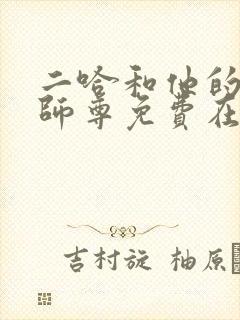 二哈和他的
師尊免費在
吉村旋 柚原